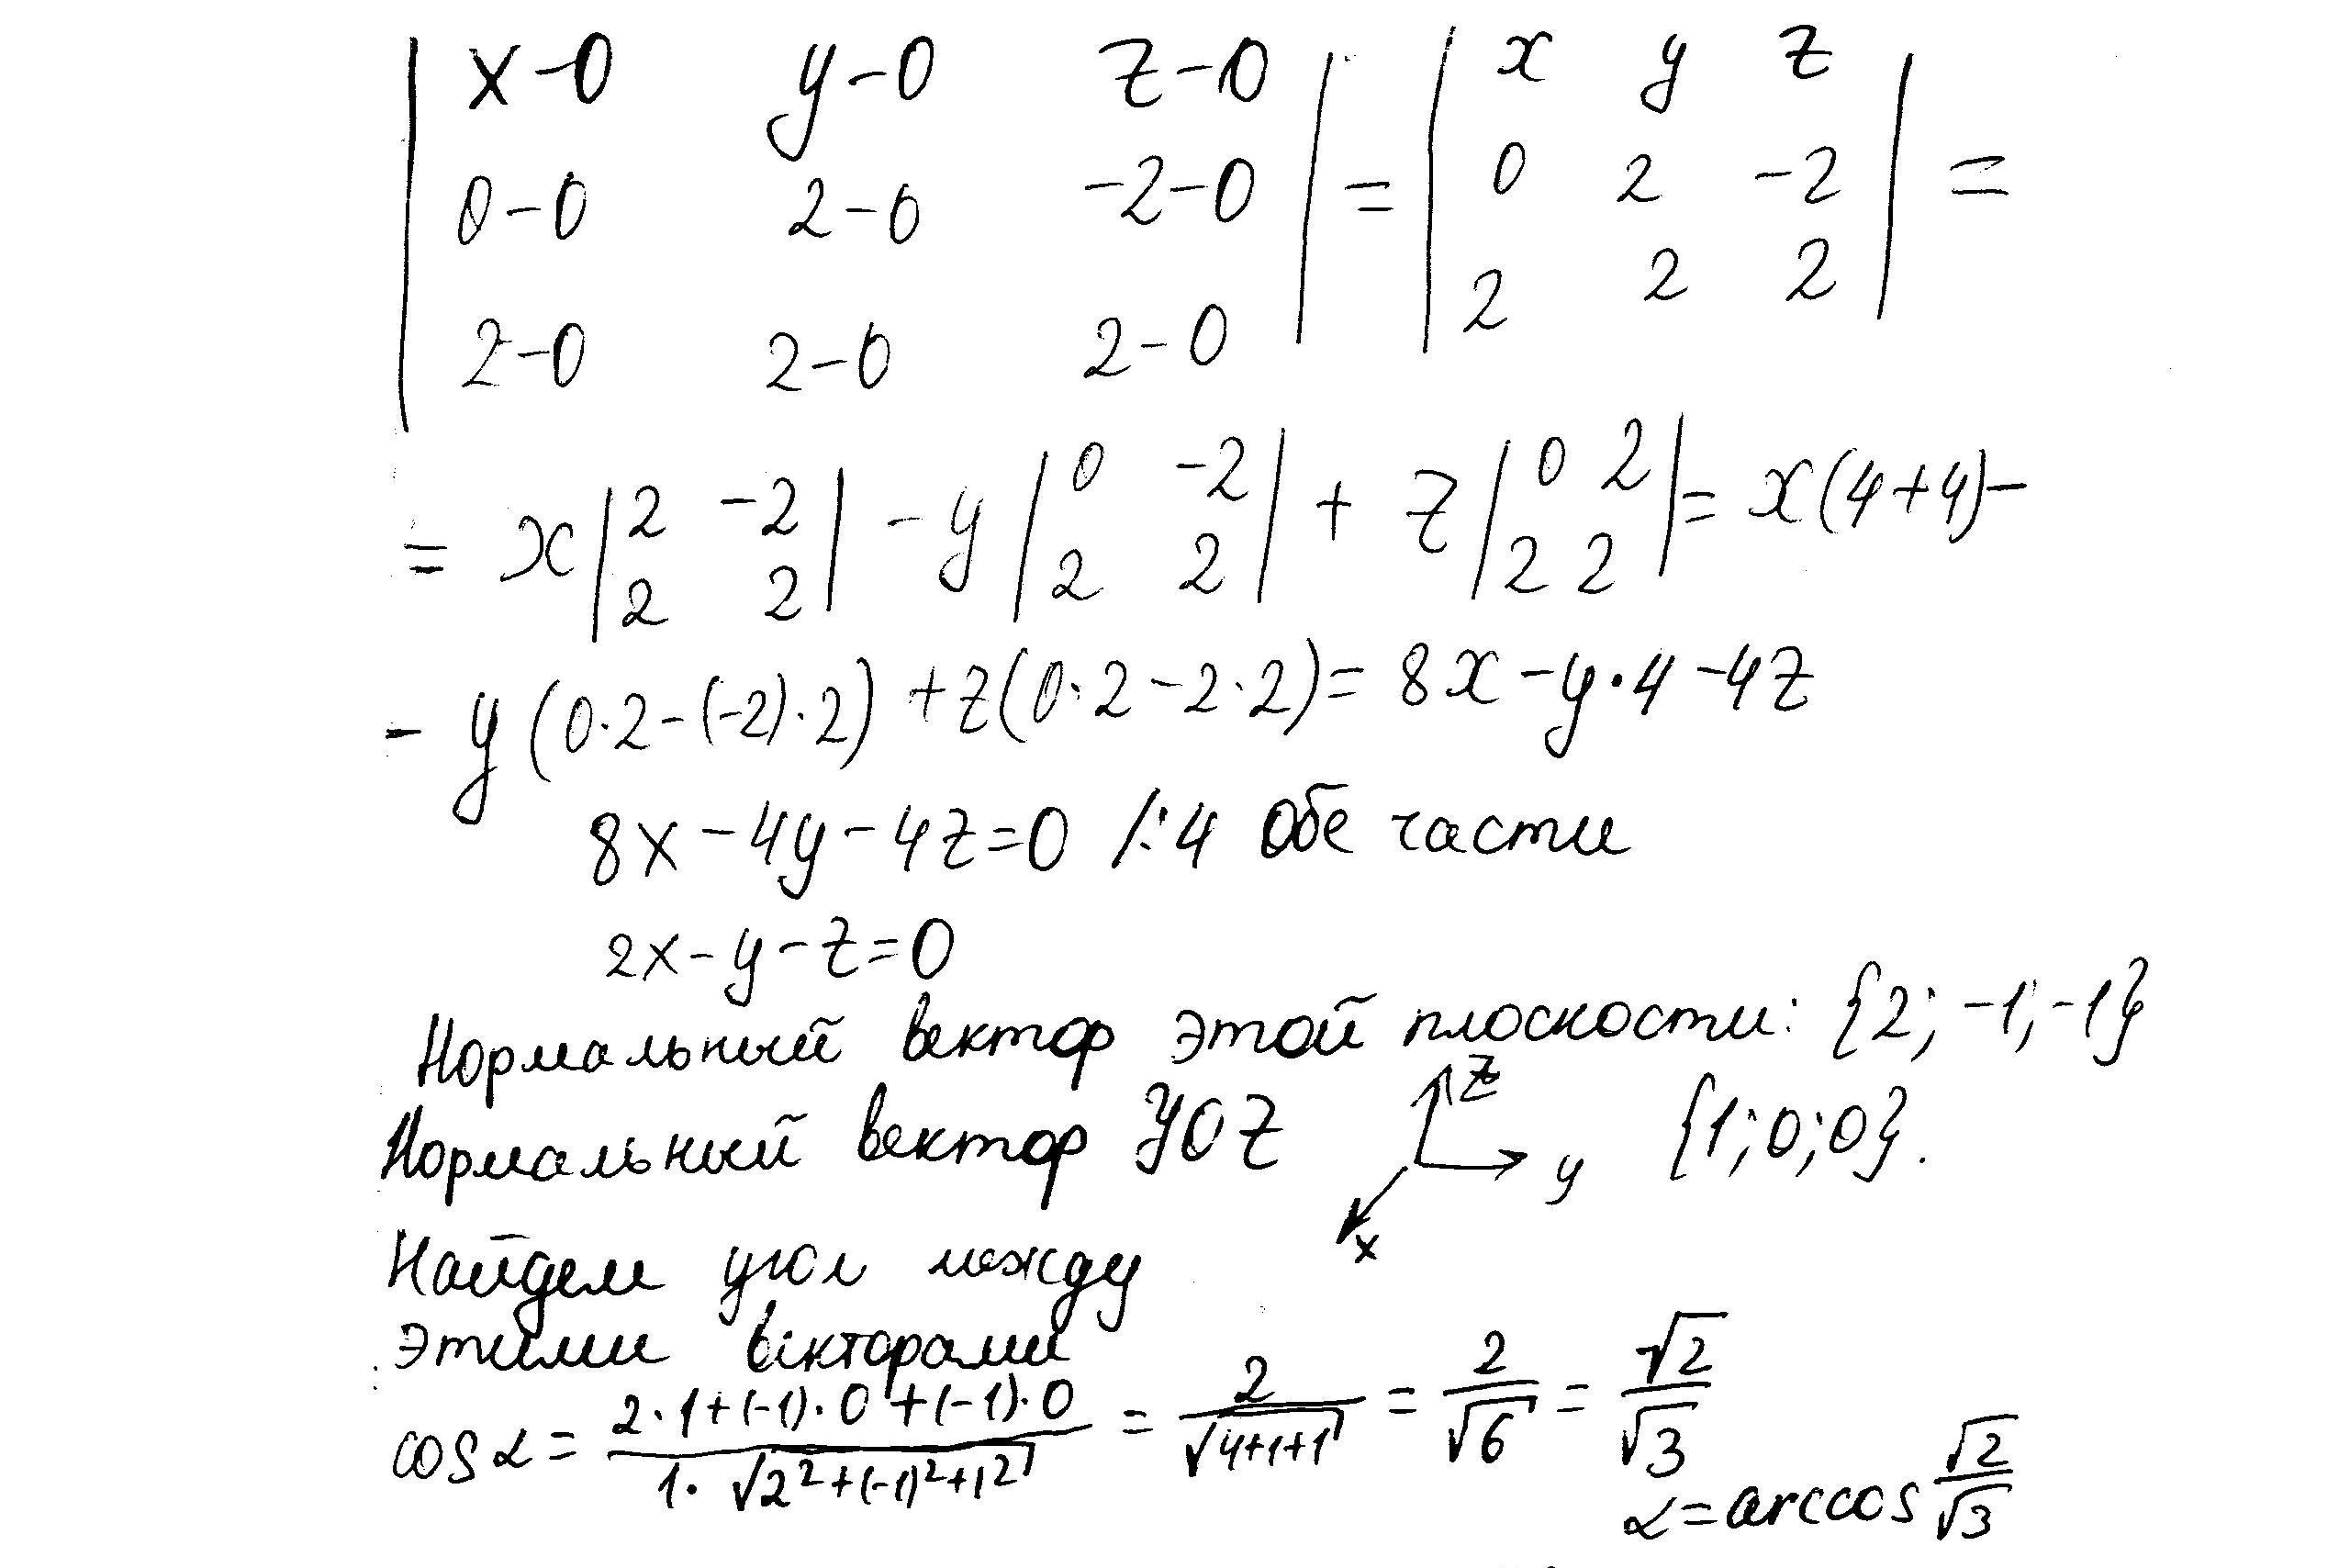 | x-0 y-0 z-0 | = | x y z | =
| 0-0 2-0 -2-0 | | 0 2 -2 |
| 2-0 2-0 2-0 | | 2 2 2 |
= x | 2 -2 | - y | 0 -2 | + z | 0 2 | = x(4+4)-
| 2 2 | | 2 2 | | 2 2 |
- y (0·2-(-2)·2) +z(0·2-2·2)= 8x-y·4-4z
8x-4y-4z=0 /:4 Обе части
2x-y-z=0
Нормальный вектор этой плоскости: {2; -1; -1}
Нормальный вектор YOZ z y x {1; 0; 0}.
Найдем угол между
этими векторами
cos α = (2·1+(-1)·0+(-1)·0)/(1·√(2²+(-1)²+1²)) = 2/√(4+1+1) = 2/√6 = √2/√3
α = arccos √2/√3